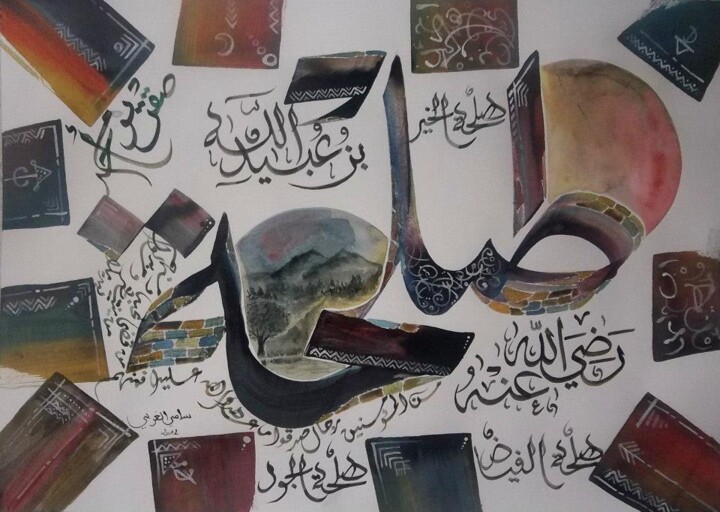 طلحة الخير
طلحة
بن عبيد الله
صقر يوم أحد
رضي الله عنه
من المؤمنين رجال صدقوا ما عاهدوا الله عليه فمنهم
طلحة الفياض
طلحة الجود
سامي